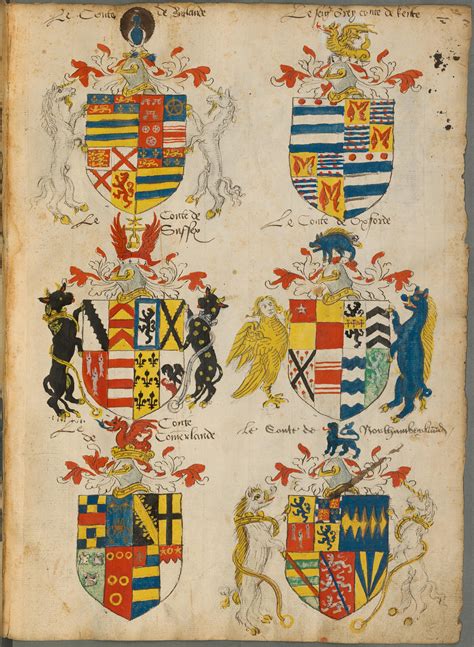 Le Conte de Rutlande
Le seig Grey conte de kente
Le Conte de
Sussex
Le Conte de Oxforde
Le Conte
de Comerlande
Le Conte de Northumberland